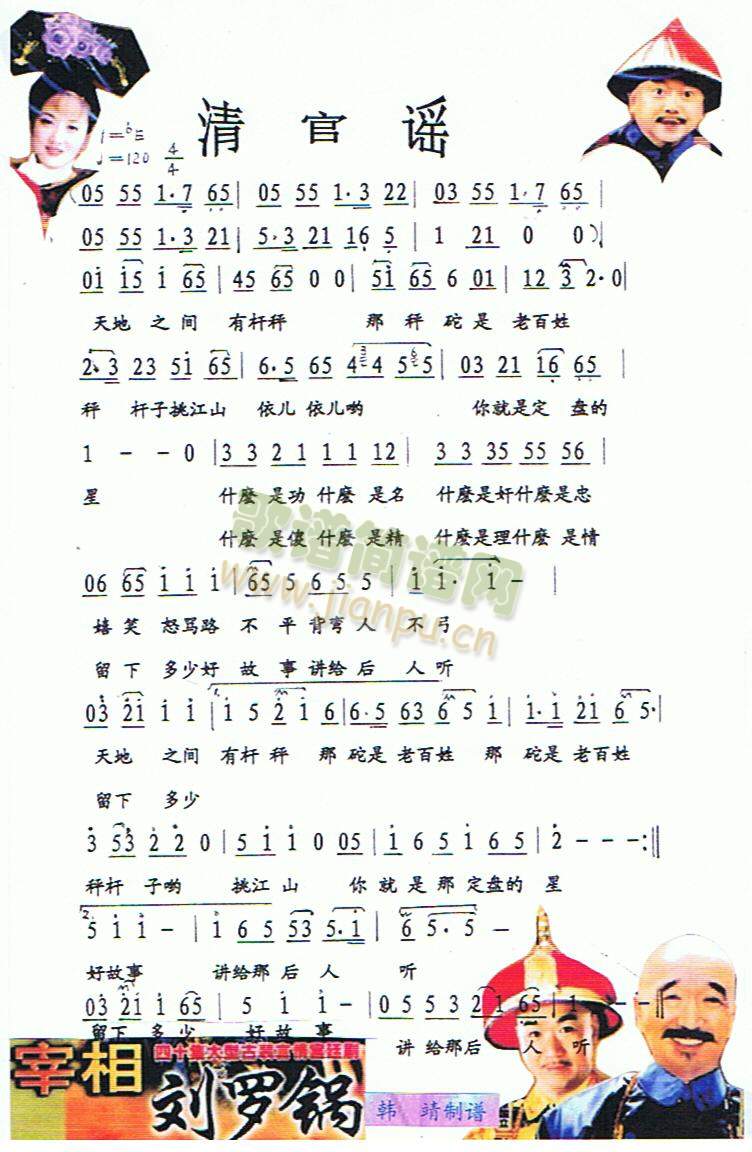 清官谣
1=♭E
♩=120 4/4
(05 55 1·7 65 | 05 55 1·3 22 | 03 55 1·7 65 |
05 55 1·3 21 | 5·3 21 16 5 | 1 21 0 0) |
01 15 1 65 | 45 65 0 0 | 51 65 6 01 | 12 3 2·0 |
天地 之间 有杆秤 那秤 砣是 老百姓
2·3 23 51 65 | 6·5 65 4 4 5 5 | 03 21 16 65 |
秤 杆子挑江山 依儿 依儿哟 你就是定 盘的
1 - - 0 | 3 3 2 1 1 1 12 | 3 3 35 55 56 |
星 什麽 是功 什麽 是名 什麽是奸什麽是忠
什麽 是傻 什麽 是精 什麽是理什麽 是情
歌谱简谱网
www.jianpu.cn
06 65 1 1 1 | 65 5 6 5 5 | 1 1· 1 - |
嬉 笑 怒骂路 不 平 背弯 人 不 弓
留 下 多少好 故 事 讲给 后 人 听
1.
03 21 1 1 | 1 5 2 1 6 | 6·5 63 6 5 1 | 1·1 21 6 5· |
天地 之间 有杆 秤 那 砣是 老百姓 那 砣是老百姓
留下 多少
3 53 2 2 0 | 5 1 1 0 05 | 1 6 5 1 6 5 | 2 - - - :‖
秤杆 子哟 挑江 山 你 就 是 那 定盘的 星
2.
5 1 1 - | 1 6 5 53 5·1 | 6 5·5 -
好故事 讲给那 后 人 听
03 21 1 65 | 5 1 1 - | 0 5 5 3 2 1 65 | 1 - - - ‖
留下 多 少 好 故 事 讲 给那后 人 听
四十集大型古装言情宫廷剧
宰相
刘罗锅
韩 靖制谱